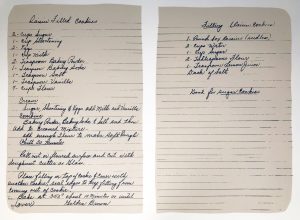 Raisin Filled Cookies
2 - Cups Sugar
1 - Cup Shortening
2 - Eggs
1 - Cup Milk
2 - Teaspoon Baking Powder
1 - Teaspoon Baking Soda
1 - Teaspoon Salt
1 - Teaspoon Vanilla
Cups Flour
Cream
Sugar, Shortening & Eggs add Milk and Vanilla
Combine
Baking Powder, Baking Soda & Salt and Flour
add to Creamed Mixture.
add enough Flour to make Soft Dough
Chill 30 Minutes
Roll out on floured surface and cut with
doughnut cutter or Glass
Place filling on top of cookie & Cover with
another Cookie, seal edges to keep filling from
coming out of Cookie.
Bake at 350° about 10 Minutes or until
Brown)
Filling (Raisin Cookies)
1 - Pound box Raisins
2 - Cups Water
1 - Cup Sugar
2 - Tablespoons Flour
1 - Teaspoon Lemon Juice
Dash of Salt
Good for Sugar Cookies